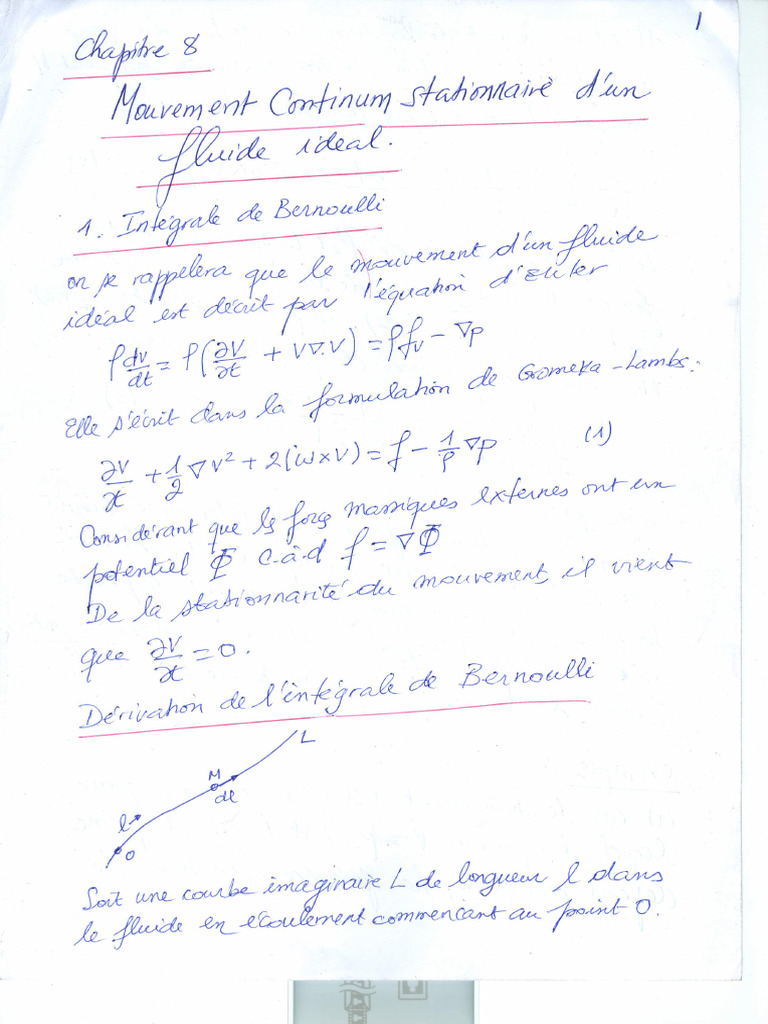 1
Chapitre 8
Mouvement Continum stationnaire d'un
fluide idéal.
1. Intégrale de Bernoulli
on se rappelera que le mouvement d'un fluide
idéal est décrit par l'équation d'Euler
ρ dv/dt = ρ(∂V/∂t + V∇.V) = ρfv − ∇p
Elle s'écrit dans la formulation de Gromeka-Lambs:
∂V/∂t + 1/2 ∇V² + 2(ω×V) = f − 1/ρ ∇p (1)
Considérant que les force massiques externes ont un
potentiel Φ c.à.d f = ∇Φ
De la stationnarité du mouvement, il vient
que ∂V/∂t = 0.
Dérivation de l'intégrale de Bernoulli
L
M
dl
l
O
Soit une courbe imaginaire L de longueur l dans
le fluide en écoulement commençant au point O.